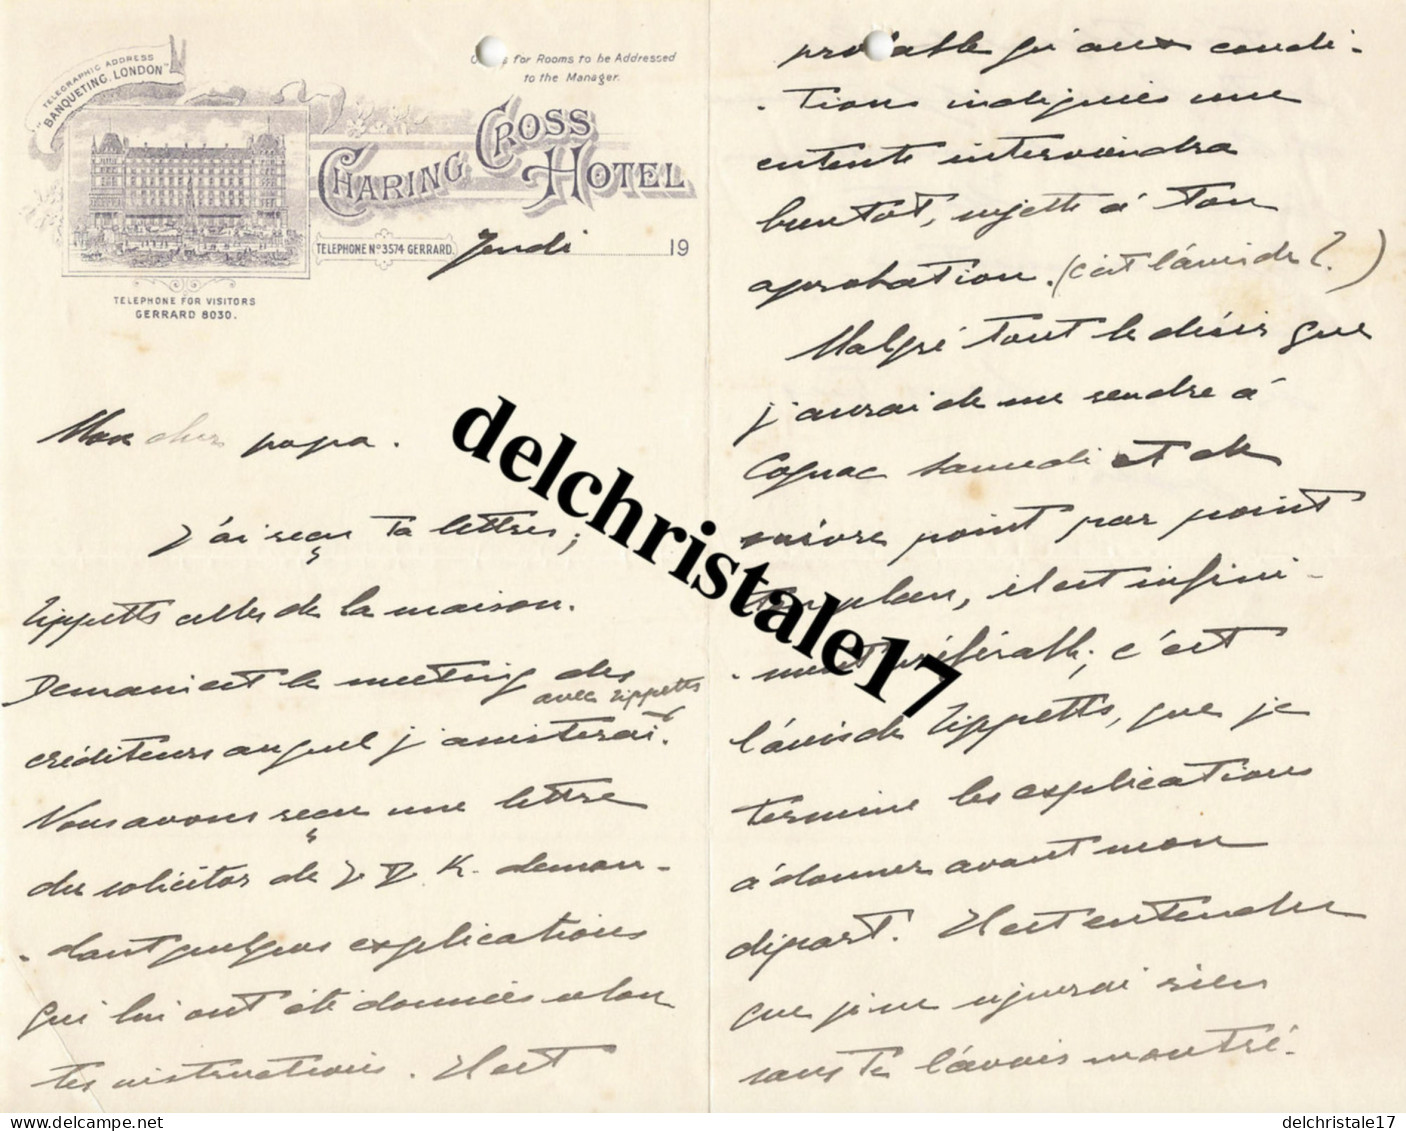 TELEGRAPHIC ADDRESS
"BANQUETING, LONDON"
for Rooms to be Addressed
to the Manager.
CHARING CROSS HOTEL
TELEPHONE No 3574 GERRARD.
Jeudi 19
TELEPHONE FOR VISITORS
GERRARD 8030.
Mon cher papa.
J'ai reçu ta lettres;
Tippetts celles de la maison.
Demain est le meeting des
avec Tippetts
créditeurs auquel j'assisterai.
Nous avons reçu une lettre
du solicitor de J. D. K. deman-
-dant quelques explications
qui lui ont été données selon
tes instructions. Il est
probable qu'aux condi-
-tions indiquées une
entente interviendra
bientot, sujette à ton
aprobation. (c'est l'avis de ?.)
Malgré tout le désir que
j'aurai de me rendre à
Cognac samedi et de
suivre point par point
plan, il est infini-
-ment préférable; c'est
l'avis de Tippetts, que je
termine les explications
à donner avant mon
départ. Il est entendu
que je ne signerai rien
sans te l'avois montré.
delchristale17
delchristale17